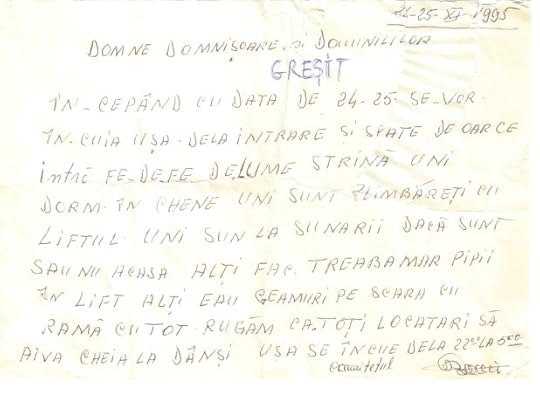 24-25-XI-1995
DOMNE DOMNIȘOARE și DOMNILILOR
GREȘIT
ÎN-CEPÂND CU DATA DE 24-25-SE-VOR-
ÎN CUIA UȘA DELA INTRARE ȘI SPATE DE OARCE
Intră FE-DE-FE DE LUME STRINĂ UNI
DORM ÎN CHENE UNI SUNT PLIMBĂREȚI CU
LIFTUL UNI SUN LA SUNARII DACĂ SUNT
SAU NU ACASA ALȚI FAC TREABA MAR PIPII
ÎN LIFT ALȚI EAU GEAMURI PE SCARA CU
RAMĂ CU TOT RUGĂM CA TOȚI LOCATARI SĂ
AIVA CHEIA LA DÂNȘI UȘA SE ÎNCUE DELA 22°° LA 5°°
Comitetul